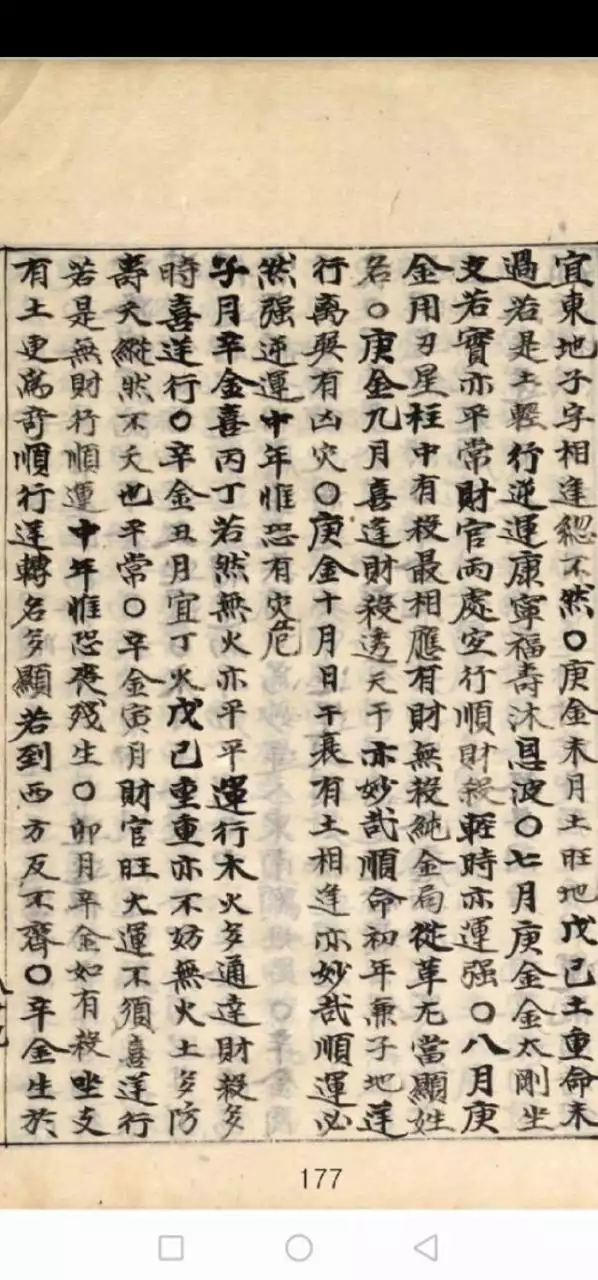 宜東地子字相逢緫不然〇庚金未月土旺地戊己土重命未
過若是土輕行逆運康寧福壽沐恩波〇七月庚金金太剛坐
支若寅亦平常財官兩處空行順財殺輕時亦運强〇八月庚
金用刃星柱中有殺最相應有財無殺純金局從革尢當顯姓
名〇庚金九月喜逢財殺透天干亦妙哉順命初年兼子地逆
行寓興有凶灾〇庚金十月日干衰有土相逢亦妙哉順運必
然强逆運中年惟恐有灾危
子月辛金喜丙丁若然無火亦平平運行木火多通達財殺多
時喜逆行〇辛金丑月宜丁火戊己重重亦不妨無火土多防
壽夭縱然不夭也平常〇辛金寅月財官旺大運不須喜逆行
若是無財行順運中年惟恐喪殘生〇卯月辛金如有殺坐支
有土更爲奇順行逆轉名多顯若到西方反不齊〇辛金生於
177